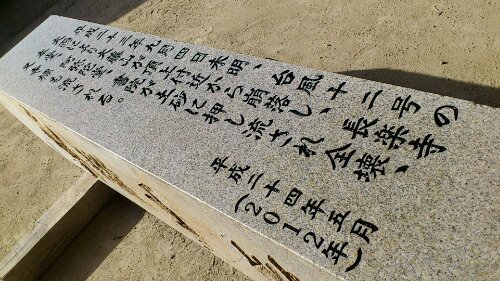 平成二十三年九月四日未明、台風十二号の
大雨により が頂上付近から崩落し、長楽寺
本堂、書院が土砂に押し流され全壊、
も流される。
平成二十四年五月
(2012年)